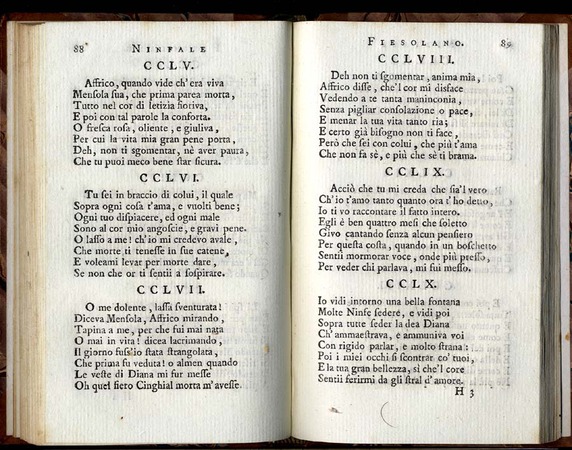 88 NINFALE
CCLV.
Affrico, quando vide ch' era viva
Mensola sua, che prima parea morta,
Tutto nel cor di letizia fioriva,
E poi con tal parole la conforta.
O fresca rosa, oliente, e giuliva,
Per cui la vita mia gran pene porta,
Deh, non ti sgomentar, nè aver paura,
Che tu puoi meco bene star sicura.
CCLVI.
Tu sei in braccio di colui, il quale
Sopra ogni cosa t'ama, e vuolti bene;
Ogni tuo dispiacere, ed ogni male
Sono al cor mio angoscie, e gravi pene.
O lasso a me! ch' io mi credevo avale,
Che morte ti tenesse in sue catene,
E voleami levar per morte dare,
Se non che or ti sentii a sospirare.
CCLVII.
O me dolente, lassa sventurata!
Diceva Mensola, Affrico mirando,
Tapina a me, per che fui mai nata
O mai in vita! dicea lacrimando,
Il giorno fuss'io stata strangolata,
Che prima fu veduta! o almen quando
Le veste di Diana mi fur messe
Oh quel fiero Cinghial morta m' avesse.
FIESOLANO. 89
CCLVIII.
Deh non ti sgomentar, anima mia,
Affrico disse, che'l cor mi disface
Vedendo a te tanta maninconia,
Senza pigliar consolazione o pace,
E menar la tua vita tanto ria;
E certo già bisogno non ti face,
Però che sei con colui, che più t'ama
Che non fa sè, e più che sè ti brama.
CCLIX.
Acciò che tu mi creda che sia'l vero
Ch' io t'amo tanto quanto ora t' ho detto,
Io ti vo raccontare il fatto intero.
Egli è ben quattro mesi che soletto
Givo cantando senza alcun pensiero
Per questa costa, quando in un boschetto
Sentii mormorar voce, onde più presso,
Per veder chi parlava, mi fui messo.
CCLX.
Io vidi intorno una bella fontana
Molte Ninfe sedere, e vidi poi
Sopra tutte seder la dea Diana
Ch' ammaestrava, e ammuniva voi
Con rigido parlar, e molto strana:
Poi i miei occhi si scontrar co' tuoi,
E la tua gran bellezza, sì che'l core
Sentii ferirmi da gli stral d' amore.
H 3